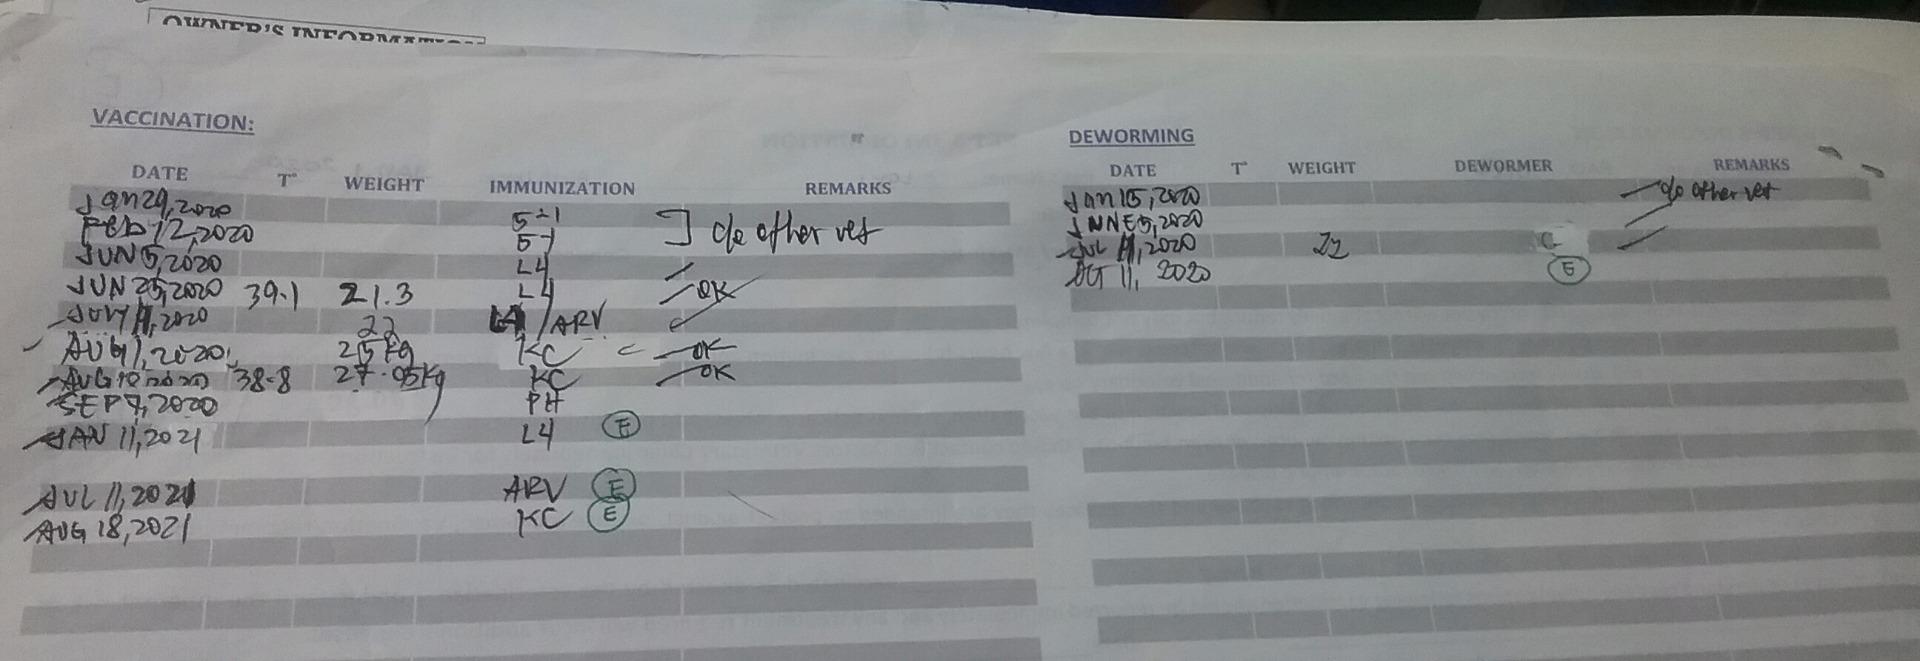 OWNER'S INFORMATION
VACCINATION:
DATE T° WEIGHT IMMUNIZATION REMARKS
Jan 29, 2020 5-1
Feb 12, 2020 5-1 ] c/o other vet
JUN 5, 2020 L4
JUN 25, 2020 39.1 21.3 L4 OK
JULY 11, 2020 22 L4 / ARV
AUG 1, 2020 25 kg KC OK
AUG 18 2020 38.8 27.05 Kg KC OK
SEP 7, 2020 PH
JAN 11, 2021 L4 E
JUL 11, 2021 ARV E
AUG 18, 2021 KC E
DEWORMING
DATE T° WEIGHT DEWORMER REMARKS
Jan 15, 2020 c/o other vet
JUNE 5, 2020
JUL 11, 2020 22 C
OCT 11, 2020 E